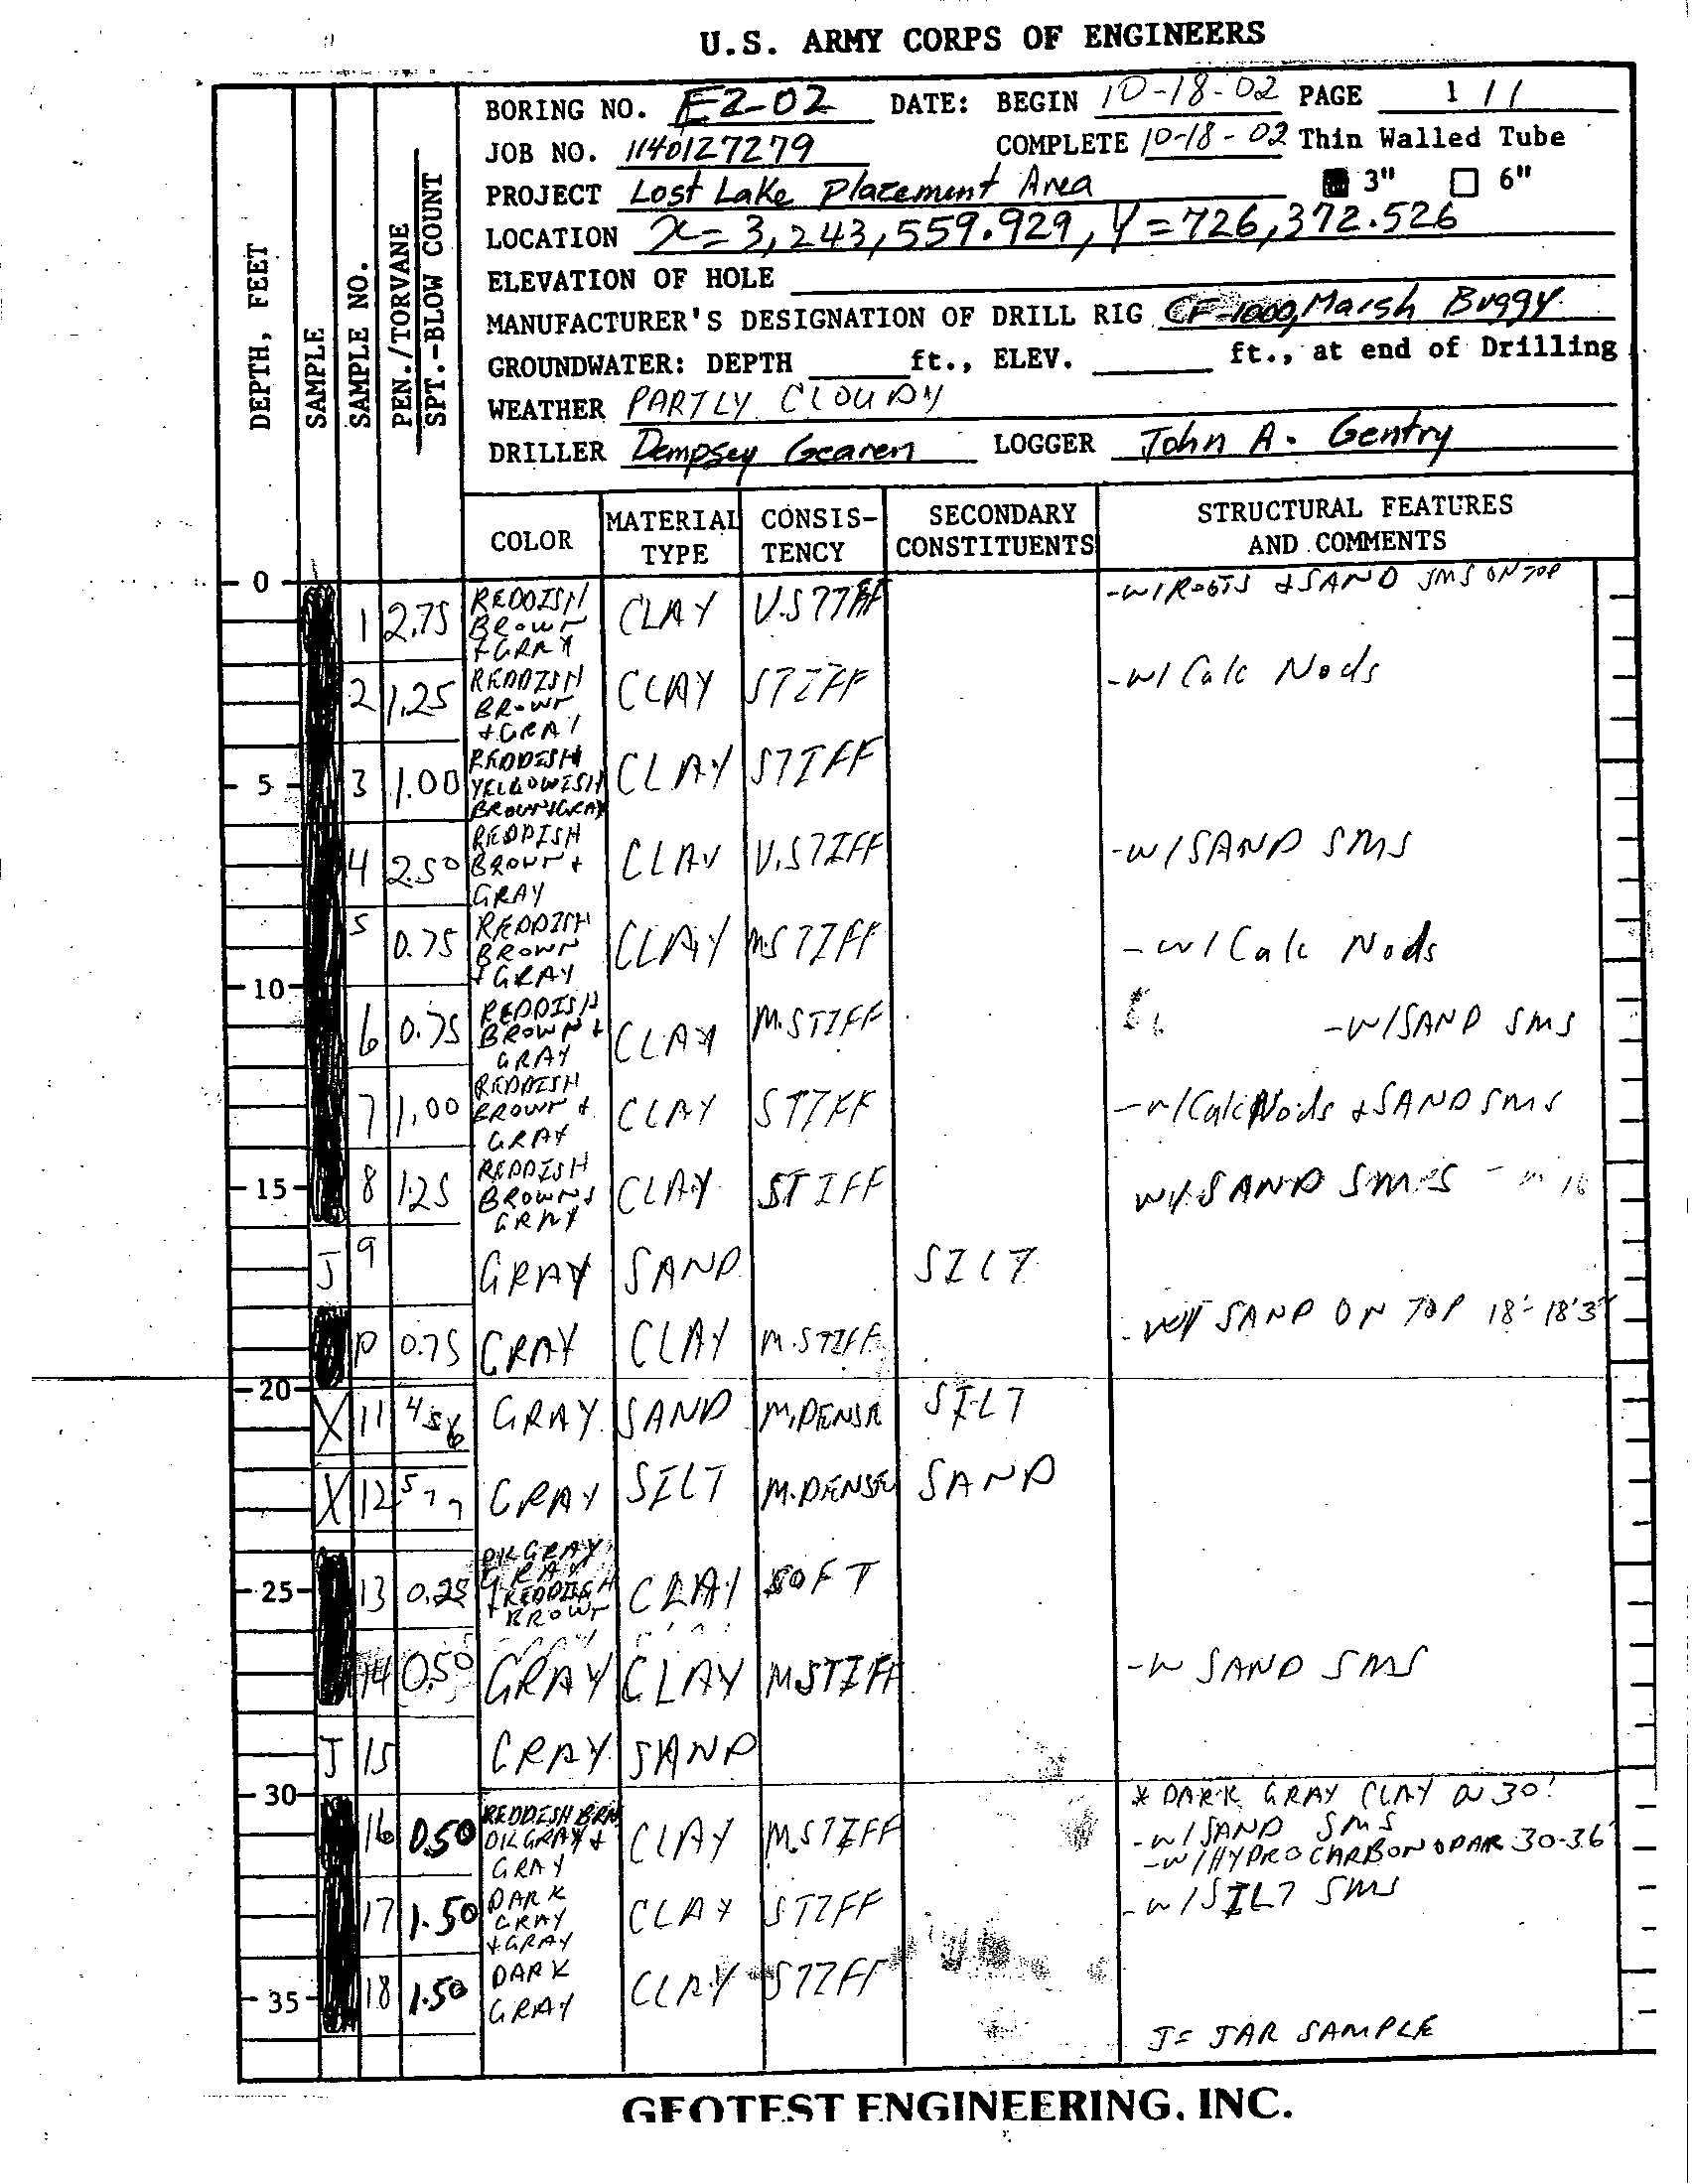 U.S. ARMY CORPS OF ENGINEERS
DEPTH, FEET
SAMPLE
SAMPLE NO.
PEN./TORVANE
SPT.-BLOW COUNT
BORING NO. E2-02 DATE: BEGIN 10-18-02 PAGE 1 / 1
JOB NO. 1140127279 COMPLETE 10-18-02 Thin Walled Tube
PROJECT Lost Lake Placement Area 3" 6"
LOCATION X=3,243,559.929, Y=726,372.526
ELEVATION OF HOLE
MANUFACTURER'S DESIGNATION OF DRILL RIG CF-1000, Marsh Buggy
GROUNDWATER: DEPTH ft., ELEV. ft., at end of Drilling
WEATHER PARTLY CLOUDY
DRILLER Dempsey Gearen LOGGER John A. Gentry
COLOR MATERIAL TYPE CONSIS-TENCY SECONDARY CONSTITUENTS STRUCTURAL FEATURES AND COMMENTS
0
1 2.75 REDDISH BROWN +GRAY CLAY V.STIFF -W/ROOTS & SAND SMS ON TOP
2 1.25 REDDISH BROWN +GRAY CLAY STIFF -W/ Calc Nods
5 3 1.00 REDDISH YELLOWISH BROWN+GRAY CLAY STIFF
4 2.50 REDDISH BROWN + GRAY CLAY V.STIFF -W/SAND SMS
5 0.75 REDDISH BROWN +GRAY CLAY M.STIFF -W/ Calc Nods
10
6 0.75 REDDISH BROWN + GRAY CLAY M.STIFF -W/SAND SMS
7 1.00 REDDISH BROWN + GRAY CLAY STIFF -W/Calc Nods & SAND SMS
15 8 1.25 REDDISH BROWN + GRAY CLAY STIFF W/ SAND SMS
J 9 GRAY SAND SILT
10 0.75 GRAY CLAY M.STIFF - W/ SAND ON TOP 18'-18'3"
20
X 11 4 5 6 GRAY SAND M.DENSE SILT
X 12 5 7 7 GRAY SILT M.DENSE SAND
25 13 0.25 DK GRAY, GRAY + REDDISH BROWN CLAY SOFT
14 0.50 GRAY CLAY M.STIFF -W SAND SMS
J 15 GRAY SAND
30 * DARK GRAY CLAY ON 30'
16 0.50 REDDISH BRN DK GRAY + GRAY CLAY M.STIFF -W/SAND SMS
-W/HYDROCARBON ODAR 30-36'
17 1.50 DARK GRAY +GRAY CLAY STIFF -W/SILT SMS
35 18 1.50 DARK GRAY CLAY STIFF
J= JAR SAMPLE
GEOTEST ENGINEERING, INC.